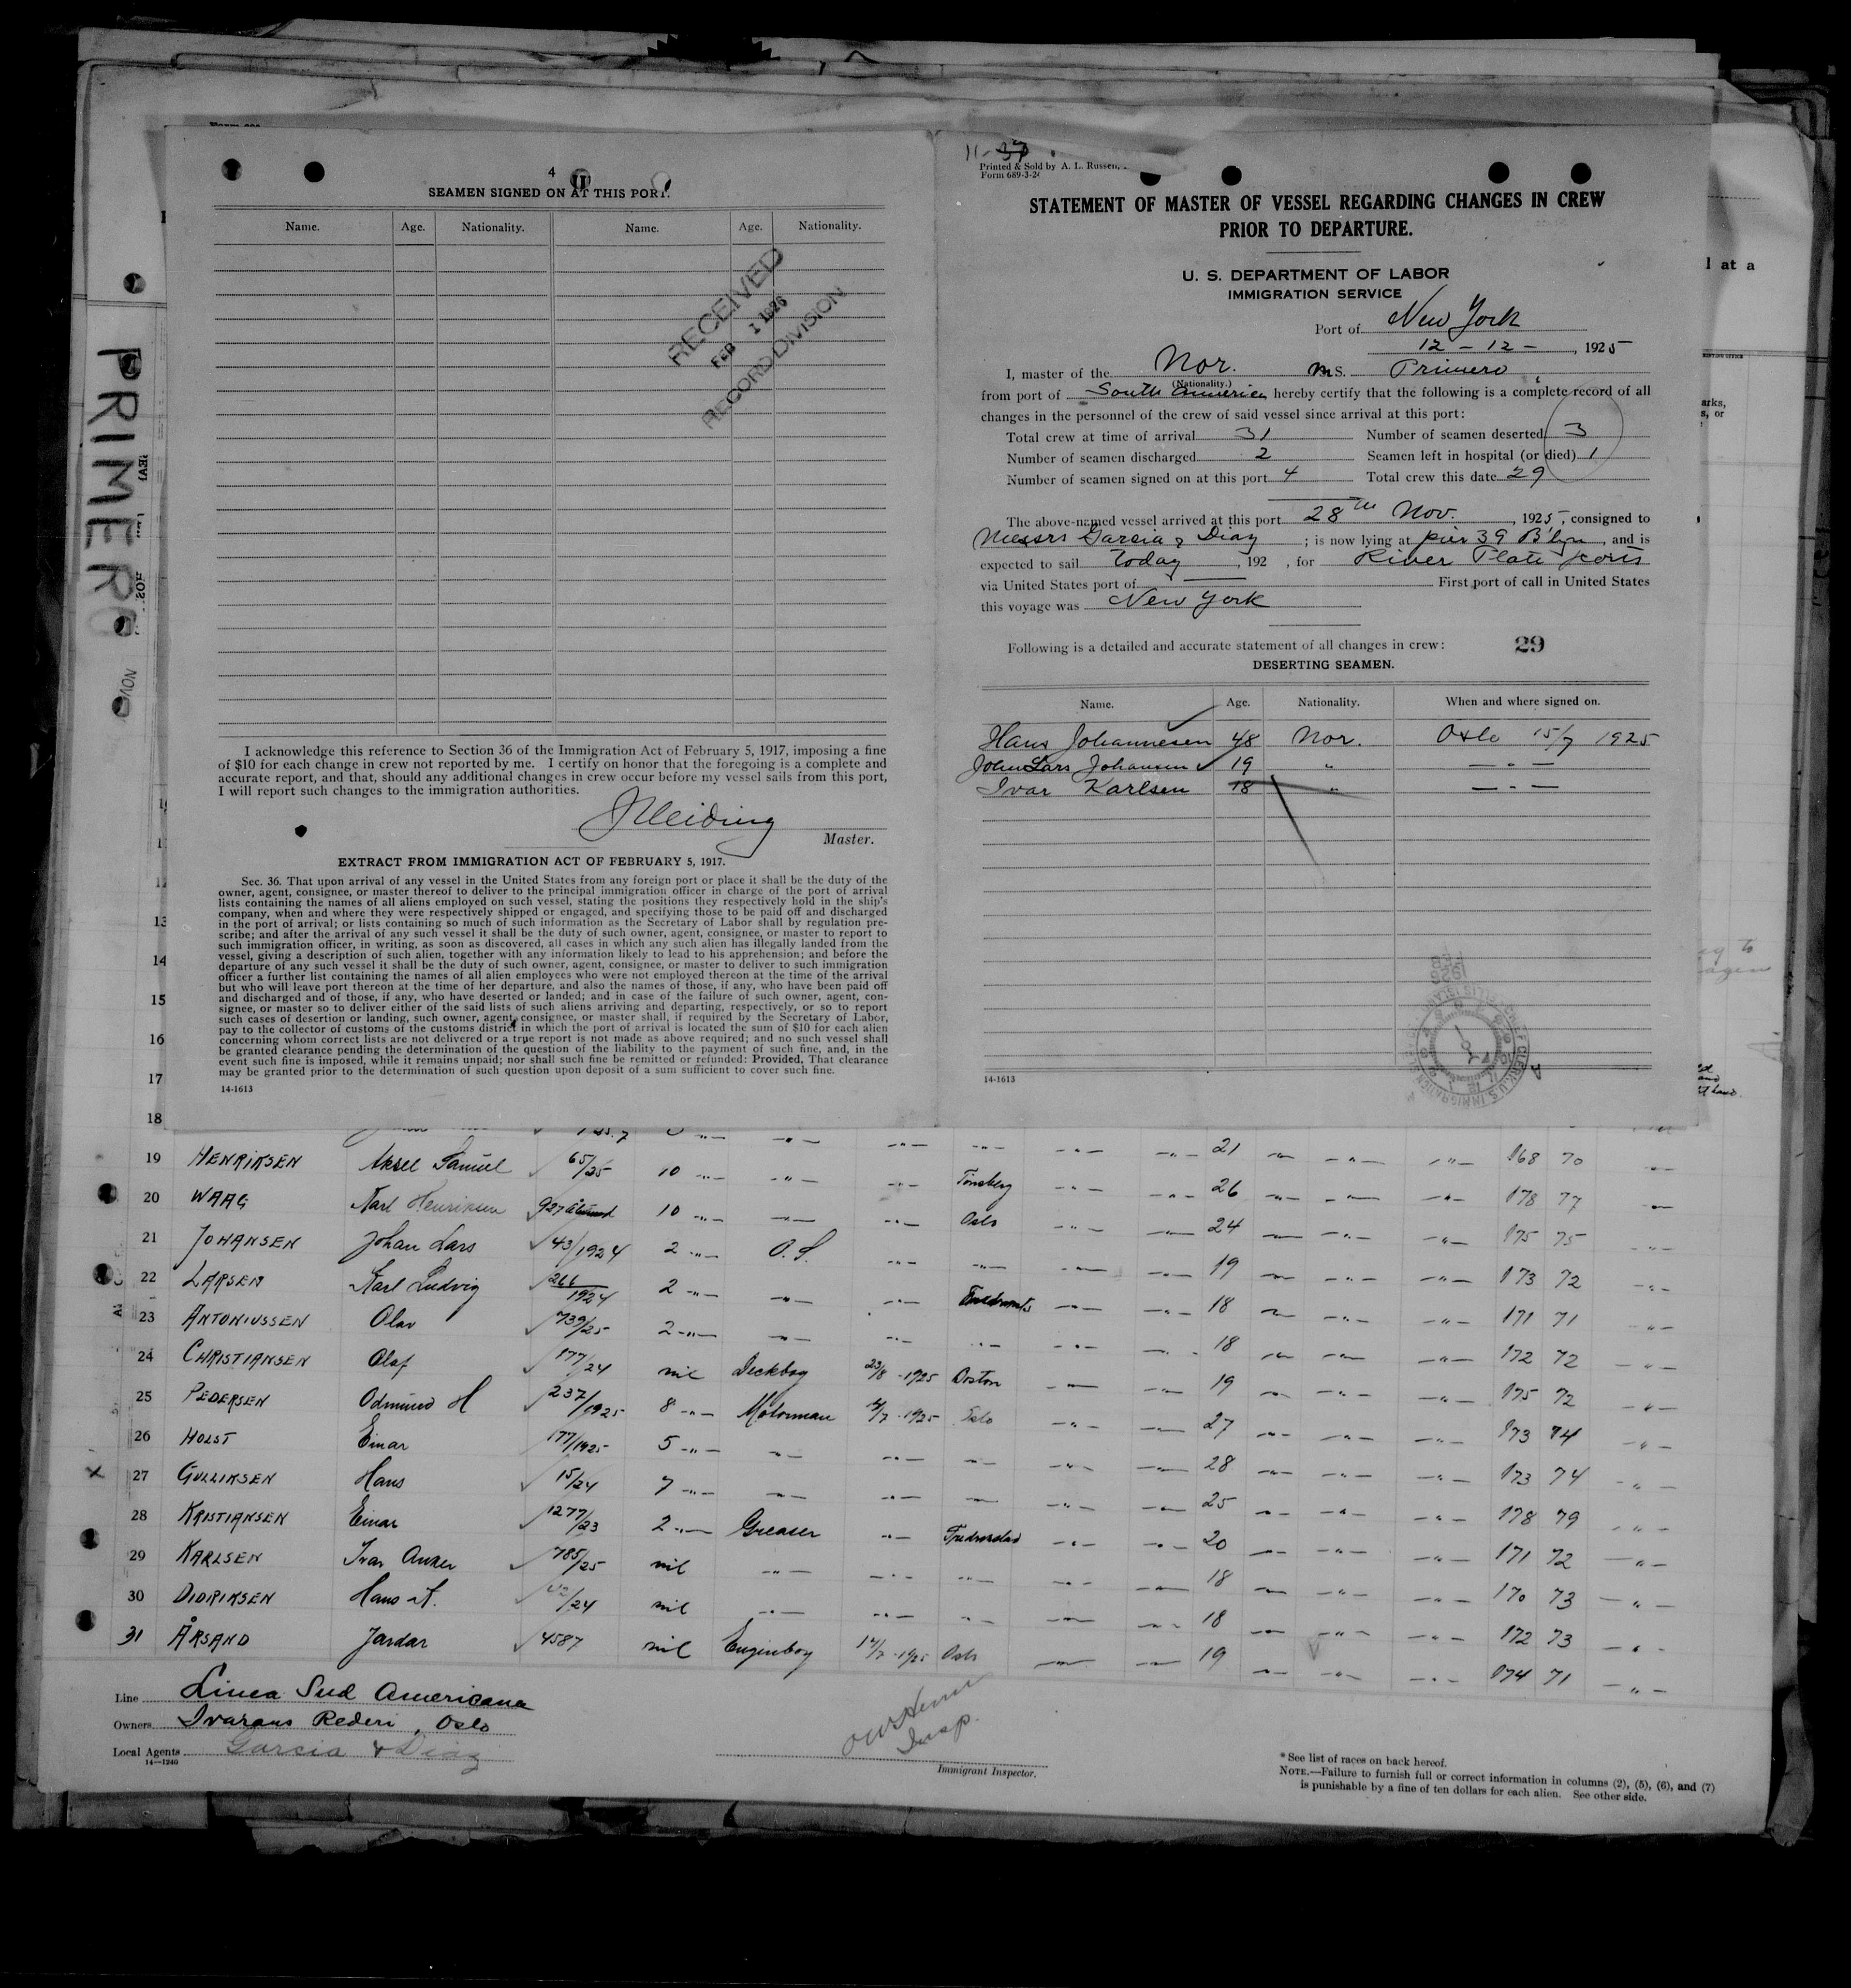 PRIMERO
NOV
4
SEAMEN SIGNED ON AT THIS PORT.
Name. Age. Nationality. Name. Age. Nationality.
RECEIVED
FEB 1 1926
RECORD DIVISION
I acknowledge this reference to Section 36 of the Immigration Act of February 5, 1917, imposing a fine
of $10 for each change in crew not reported by me. I certify on honor that the foregoing is a complete and
accurate report, and that, should any additional changes in crew occur before my vessel sails from this port,
I will report such changes to the immigration authorities.
Master.
EXTRACT FROM IMMIGRATION ACT OF FEBRUARY 5, 1917.
Sec. 36. That upon arrival of any vessel in the United States from any foreign port or place it shall be the duty of the
owner, agent, consignee, or master thereof to deliver to the principal immigration officer in charge of the port of arrival
lists containing the names of all aliens employed on such vessel, stating the positions they respectively hold in the ship's
company, when and where they were respectively shipped or engaged, and specifying those to be paid off and discharged
in the port of arrival; or lists containing so much of such information as the Secretary of Labor shall by regulation pre-
scribe; and after the arrival of any such vessel it shall be the duty of such owner, agent, consignee, or master to report to
such immigration officer, in writing, as soon as discovered, all cases in which any such alien has illegally landed from the
vessel, giving a description of such alien, together with any information likely to lead to his apprehension; and before the
departure of any such vessel it shall be the duty of such owner, agent, consignee, or master to deliver to such immigration
officer a further list containing the names of all alien employees who were not employed thereon at the time of the arrival
but who will leave port thereon at the time of her departure, and also the names of those, if any, who have been paid off
and discharged and of those, if any, who have deserted or landed; and in case of the failure of such owner, agent, con-
signee, or master so to deliver either of the said lists of such aliens arriving and departing, respectively, or so to report
such cases of desertion or landing, such owner, agent, consignee, or master shall, if required by the Secretary of Labor,
pay to the collector of customs of the customs district in which the port of arrival is located the sum of $10 for each alien
concerning whom correct lists are not delivered or a true report is not made as above required; and no such vessel shall
be granted clearance pending the determination of the question of the liability to the payment of such fine, and, in the
event such fine is imposed, while it remains unpaid; nor shall such fine be remitted or refunded: Provided, That clearance
may be granted prior to the determination of such question upon deposit of a sum sufficient to cover such fine.
14-1613
Printed & Sold by A. L. Russell,
Form 689-3-24
STATEMENT OF MASTER OF VESSEL REGARDING CHANGES IN CREW
PRIOR TO DEPARTURE.
U. S. DEPARTMENT OF LABOR
IMMIGRATION SERVICE
Port of New York
12 - 12 - , 1925
I, master of the Nor. M S. Primero
(Nationality.)
from port of South America hereby certify that the following is a complete record of all
changes in the personnel of the crew of said vessel since arrival at this port:
Total crew at time of arrival 31 Number of seamen deserted 3
Number of seamen discharged 2 Seamen left in hospital (or died) 1
Number of seamen signed on at this port 4 Total crew this date 29
The above-named vessel arrived at this port 28th Nov. , 1925, consigned to
Messrs Garcia & Diaz ; is now lying at pier 39 B'lyn , and is
expected to sail today , 192 , for River Plate ports
via United States port of First port of call in United States
this voyage was New York
Following is a detailed and accurate statement of all changes in crew: 29
DESERTING SEAMEN.
Name. Age. Nationality. When and where signed on.
Hans Johannesen 48 Nor. Oslo 15/7 1925
John Lars Johansen 19 " — " —
Ivar Karlsen 18 " — " —
14-1613
l at a
13
14
15
16
17
18
21
19 HENRIKSEN Aksel Samuel 65/25 10 Tönsberg 26 168 70
20 WAAG Karl Henriksen 927 10 Oslo 24 178 77
21 JOHANSEN Johan Lars 43/1924 2 O.S. 19 175 75
22 LARSEN Karl Ludvig 266/1924 2 18 173 72
23 ANTONIUSSEN Olav 739/25 2 18 171 71
24 CHRISTIANSEN Olaf 177/24 nil Deckboy 23/8 - 1925 Boston 19 172 72
25 PEDERSEN Odmund H 237/1925 8 Motorman 14/7 - 1925 Oslo 27 175 72
26 HOLST Einar 177/1925 5 28 173 74
27 GULLIKSEN Hans 15/24 7 25 173 74
28 KRISTIANSEN Einar 1277/23 2 Greaser Fredrikstad 20 178 79
29 KARLSEN Ivar Anker 785/25 nil 18 171 72
30 DIDRIKSEN Hans A. nil 18 170 73
31 ÅRSAND Jardar 4587 nil Enginboy 14/7 - 1925 Oslo 19 172 73
174 71
Line Linea Sud Americana
Owners Ivarans Rederi, Oslo
Local Agents Garcia & Diaz
14—1240
Insp.
Immigrant Inspector.
*See list of races on back hereof.
NOTE.—Failure to furnish full or correct information in columns (2), (5), (6), and (7)
is punishable by a fine of ten dollars for each alien. See other side.